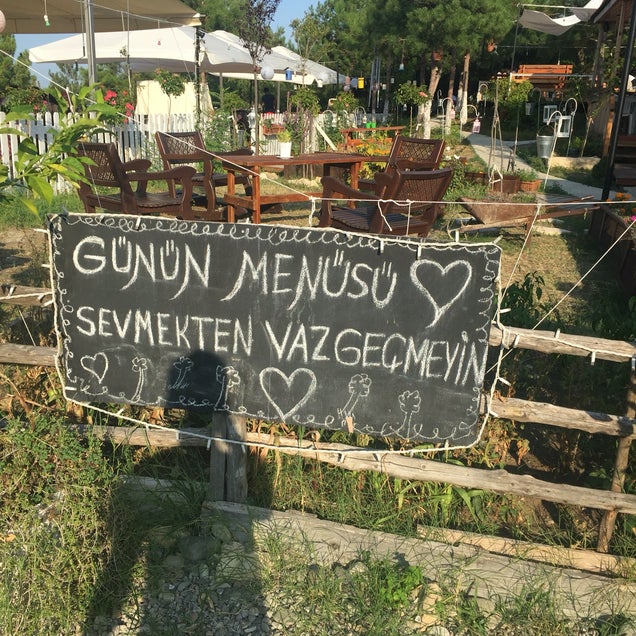 GÜNÜN MENÜSÜ
SEVMEKTEN VAZGEÇMEYİN